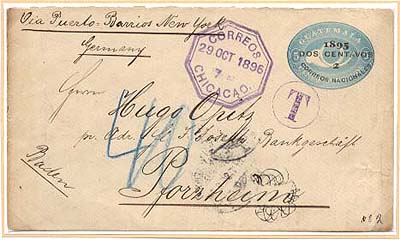 Via Puerto-Barrios New York
Germany
CORREOS
29 OCT 1896
7
CHICACAO.
GUATEMALA
1895
DOS CENTAVOS
2
CORREOS NACIONALES
T
Herrn
Hugo Opetz
p. Adr. Joseph Bankgeschäft
Pforzheim
Baden